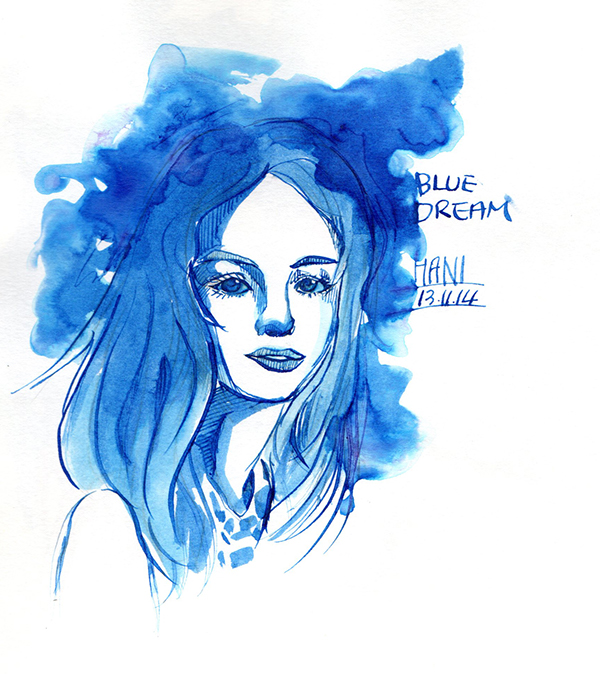 BLUE
DREAM
HANI
13.11.14